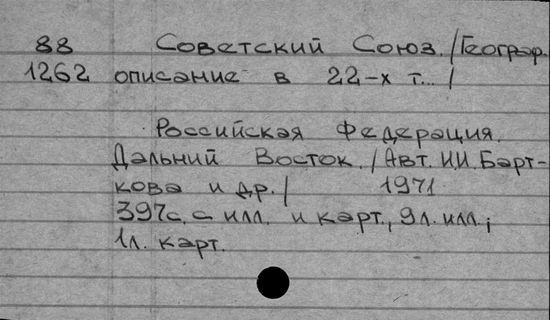 88 Советский Союз. /Географ.
1262 описание в 22-х т... /
Российская Федерация.
Дальний Восток. /Авт. И.И. Барт-
кова и др./ 1971
397с. с илл. и карт., 9л. илл.;
1л. карт.